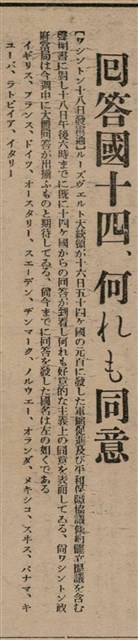 回答國十四、何れも同意
【ワシントン十八日發電通】ルーズヴェルト大統領が十六日五十四ケ國の元首に發した軍縮促進及び平和保障協議條約確立提議を含む
聲明書に對し十八日午後六時までに既に十四ケ國からの回答が到着し何れも好意的な主義上の同意を表明してゐる、尚ワシントン政
府當局は今週中に大體回答が出揃ふものと期待してゐる、尚今までに回答を發した國名は左の如くである
イギリス、フランス、ドイツ、オースタリー、スエーデン、デンマーク、ノルウエー、オランダ、メキシコ、スヰス、パナマ、キ
ユーバ、ラトビイア、イタリー